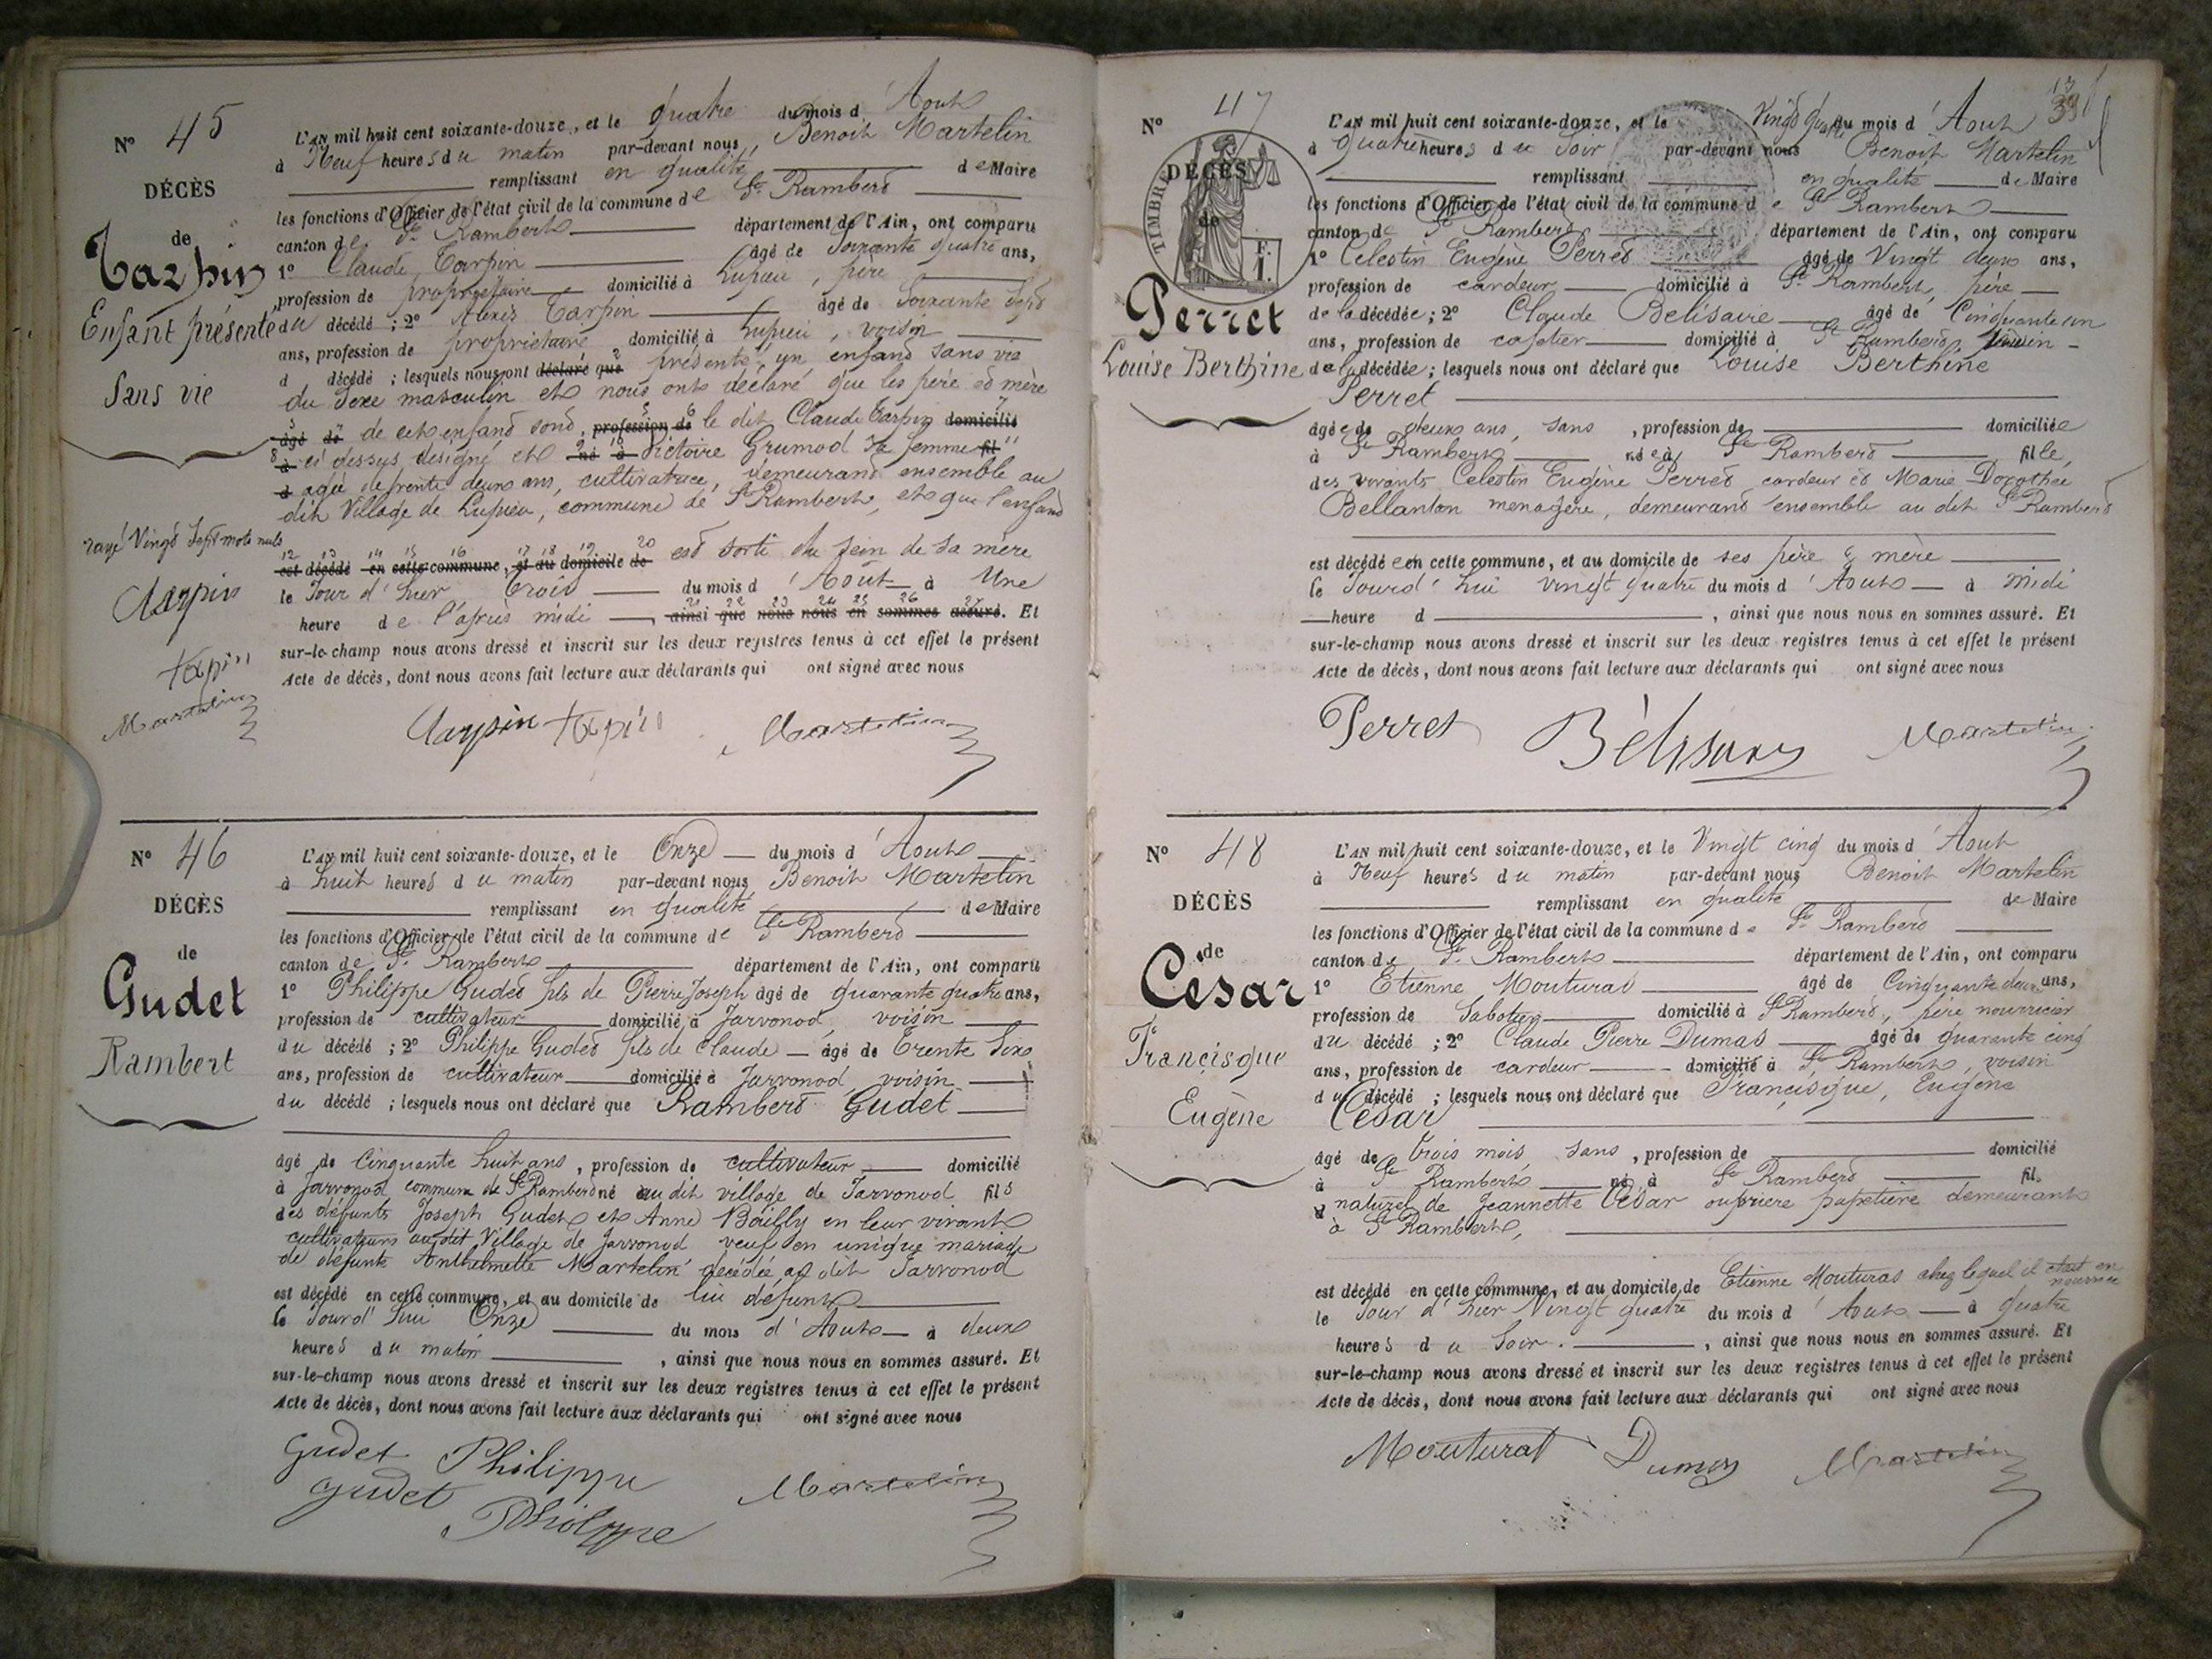 N° 45
DÉCÈS
de
Tarpin
Enfant présenté
Sans vie
rayé Vingt Sept mots nuls
Tarpin
Martelin
L'AN mil huit cent soixante-douze, et le quatre du mois d'Aout
à Neuf heures du matin par-devant nous, Benoit Martelin
remplissant en qualité de Maire
les fonctions d'Officier de l'état civil de la commune de St Rambert
canton de St Rambert département de l'Ain, ont comparu
1° Claude Tarpin âgé de Soixante quatre ans,
profession de propriétaire domicilié à Lupieu, père
du décédé ; 2° Alexis Tarpin âgé de Soixante Sept
ans, profession de propriétaire domicilié à Lupieu, voisin
d décédé ; lesquels nous ont déclaré que présenté un enfant sans vie
du Sexe masculin et nous ont déclaré que les père et mère
âgé de de cet enfant sont, profession de le dit Claude Tarpin domicilié
à ci dessus désigné et né à Victoire Grumod sa femme fil
d agée de trente deux ans, cultivatrice, demeurant ensemble au
dit Village de Lupieu, commune de St Rambert, et que l'enfant
12 13 14 15 16 17 18 19 20
est décédé en cette commune, et au domicile de est sorti du sein de sa mère
le Jour d'hier trois du mois d'Aout à Une
21 22 23 24 25 26 27
heure de l'après midi ainsi que nous nous en sommes assuré. Et
sur-le-champ nous avons dressé et inscrit sur les deux registres tenus à cet effet le présent
Acte de décès, dont nous avons fait lecture aux déclarants qui ont signé avec nous
Tarpin Martelin
N° 46
DÉCÈS
de
Gudet
Rambert
L'AN mil huit cent soixante-douze, et le Onze du mois d'Aout
à huit heures du matin par-devant nous Benoit Martelin
remplissant en qualité de Maire
les fonctions d'Officier de l'état civil de la commune de St Rambert
canton de St Rambert département de l'Ain, ont comparu
1° Philippe Gudet fils de Pierre Joseph âgé de quarante quatre ans,
profession de cultivateur domicilié à Javornod, voisin
du décédé ; 2° Philippe Gudet fils de Claude âgé de trente Six
ans, profession de cultivateur domicilié à Javornod voisin
du décédé ; lesquels nous ont déclaré que Rambert Gudet
âgé de Cinquante huit ans, profession de cultivateur domicilié
à Javornod commune de St Rambert né au dit village de Javornod fils
des défunts Joseph Gudet et Anne Bailly en leur vivant
cultivateurs au dit Village de Javornod veuf en unique mariage
de défunte Anthelmette Martelin décédée au dit Javornod
est décédé en cette commune, et au domicile de lui défunt
le Jourd'hui Onze du mois d'Aout à deux
heures du matin, ainsi que nous nous en sommes assuré. Et
sur-le-champ nous avons dressé et inscrit sur les deux registres tenus à cet effet le présent
Acte de décès, dont nous avons fait lecture aux déclarants qui ont signé avec nous
Gudet Philippe
Gudet Philippe Martelin
N° 47
DÉCÈS
de
TIMBRE
Perret
Louise Berthine
L'AN mil huit cent soixante-douze, et le Vingt quatre du mois d'Aout
à Quatre heures du Soir par-devant nous Benoit Martelin
remplissant en qualité de Maire
les fonctions d'Officier de l'état civil de la commune de St Rambert
canton de St Rambert département de l'Ain, ont comparu
1° Celestin Eugène Perret âgé de Vingt deux ans,
profession de cardeur domicilié à St Rambert, père
de la décédée ; 2° Claude Belisaire âgé de Cinquante un
ans, profession de cafetier domicilié à St Rambert, voisin
de la décédée ; lesquels nous ont déclaré que Louise Berthine
Perret
âgée de deux ans, sans, profession de domiciliée
à St Rambert née à St Rambert fille
des vivants Celestin Eugène Perret cardeur et Marie Dorothée
Bellanton menagère, demeurant ensemble au dit St Rambert
est décédée en cette commune, et au domicile de ses père & mère
le Jourd'hui vingt quatre du mois d'Aout à midi
heure d, ainsi que nous nous en sommes assuré. Et
sur-le-champ nous avons dressé et inscrit sur les deux registres tenus à cet effet le présent
Acte de décès, dont nous avons fait lecture aux déclarants qui ont signé avec nous
Perret Martelin
N° 48
DÉCÈS
de
Cesar
Francisque
Eugène
L'AN mil huit cent soixante-douze, et le Vingt cinq du mois d'Aout
à Neuf heures du matin par-devant nous Benoit Martelin
remplissant en qualité de Maire
les fonctions d'Officier de l'état civil de la commune de St Rambert
canton de St Rambert département de l'Ain, ont comparu
1° Etienne Mouturat âgé de Cinquante deux ans,
profession de Sabotier domicilié à St Rambert, père nourricier
du décédé ; 2° Claude Pierre Dumas âgé de quarante cinq
ans, profession de cardeur domicilié à St Rambert, voisin
du décédé ; lesquels nous ont déclaré que Francisque, Eugène
Cesar
âgé de trois mois, sans, profession de domicilié
à St Rambert né à St Rambert fils
d naturel de Jeannette Cesar ouvriere papetière demeurant
à St Rambert,
est décédé en cette commune, et au domicile de Etienne Mouturat chez lequel il était en nourrice
le Jour d'hier Vingt quatre du mois d'Aout à quatre
heures du Soir, ainsi que nous nous en sommes assuré. Et
sur-le-champ nous avons dressé et inscrit sur les deux registres tenus à cet effet le présent
Acte de décès, dont nous avons fait lecture aux déclarants qui ont signé avec nous
Mouturat Dumas Martelin